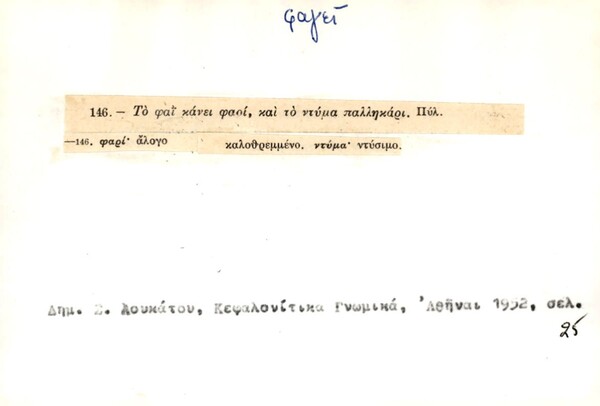 φαγεῖ
146. – Τὸ φαῒ κάνει φαρί, καὶ τὸ ντύμα παλληκάρι. Πύλ.
—146. φαρί· ἄλογο καλοθρεμμένο. ντύμα· ντύσιμο.
Δημ. Σ. Λουκάτου, Κεφαλονίτικα Γνωμικά, Ἀθῆναι 1952, σελ.
25